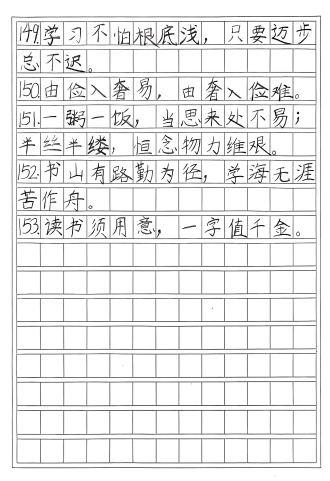 149.学习不怕根底浅，只要迈步
总不迟。
150.由俭入奢易，由奢入俭难。
151.一粥一饭，当思来处不易；
半丝半缕，恒念物力维艰。
152.书山有路勤为径，学海无涯
苦作舟。
153.读书须用意，一字值千金。